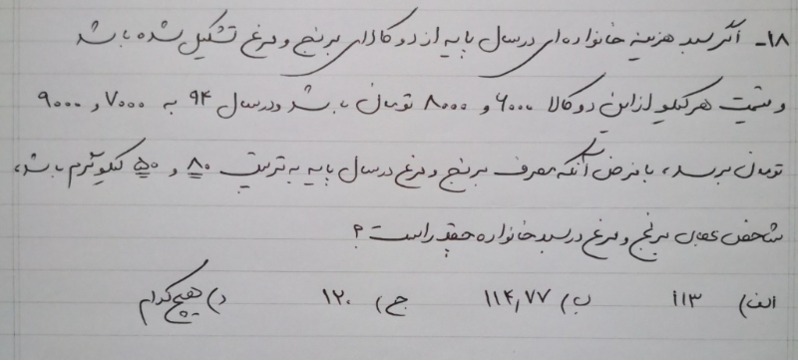 ۱۸- اگر سبد هزینه خانواده ای در سال پایه از دو کالای برنج و مرغ تشکیل شده باشد
و قیمت هر کیلو از این دو کالا ۶۰۰۰ و ۸۰۰۰ تومان باشد و در سال ۹۴ به ۷۰۰۰ و ۹۰۰۰
تومان برسد، با فرض آنکه مصرف برنج و مرغ در سال پایه به ترتیب ۸۰ و ۵۰ کیلوگرم باشد،
شاخص برنج و مرغ در سبد خانواده چقدر است؟
الف) ۱۱۳ ب) ۱۱۴,۷۷ ج) ۱۲۰ د) هیچکدام